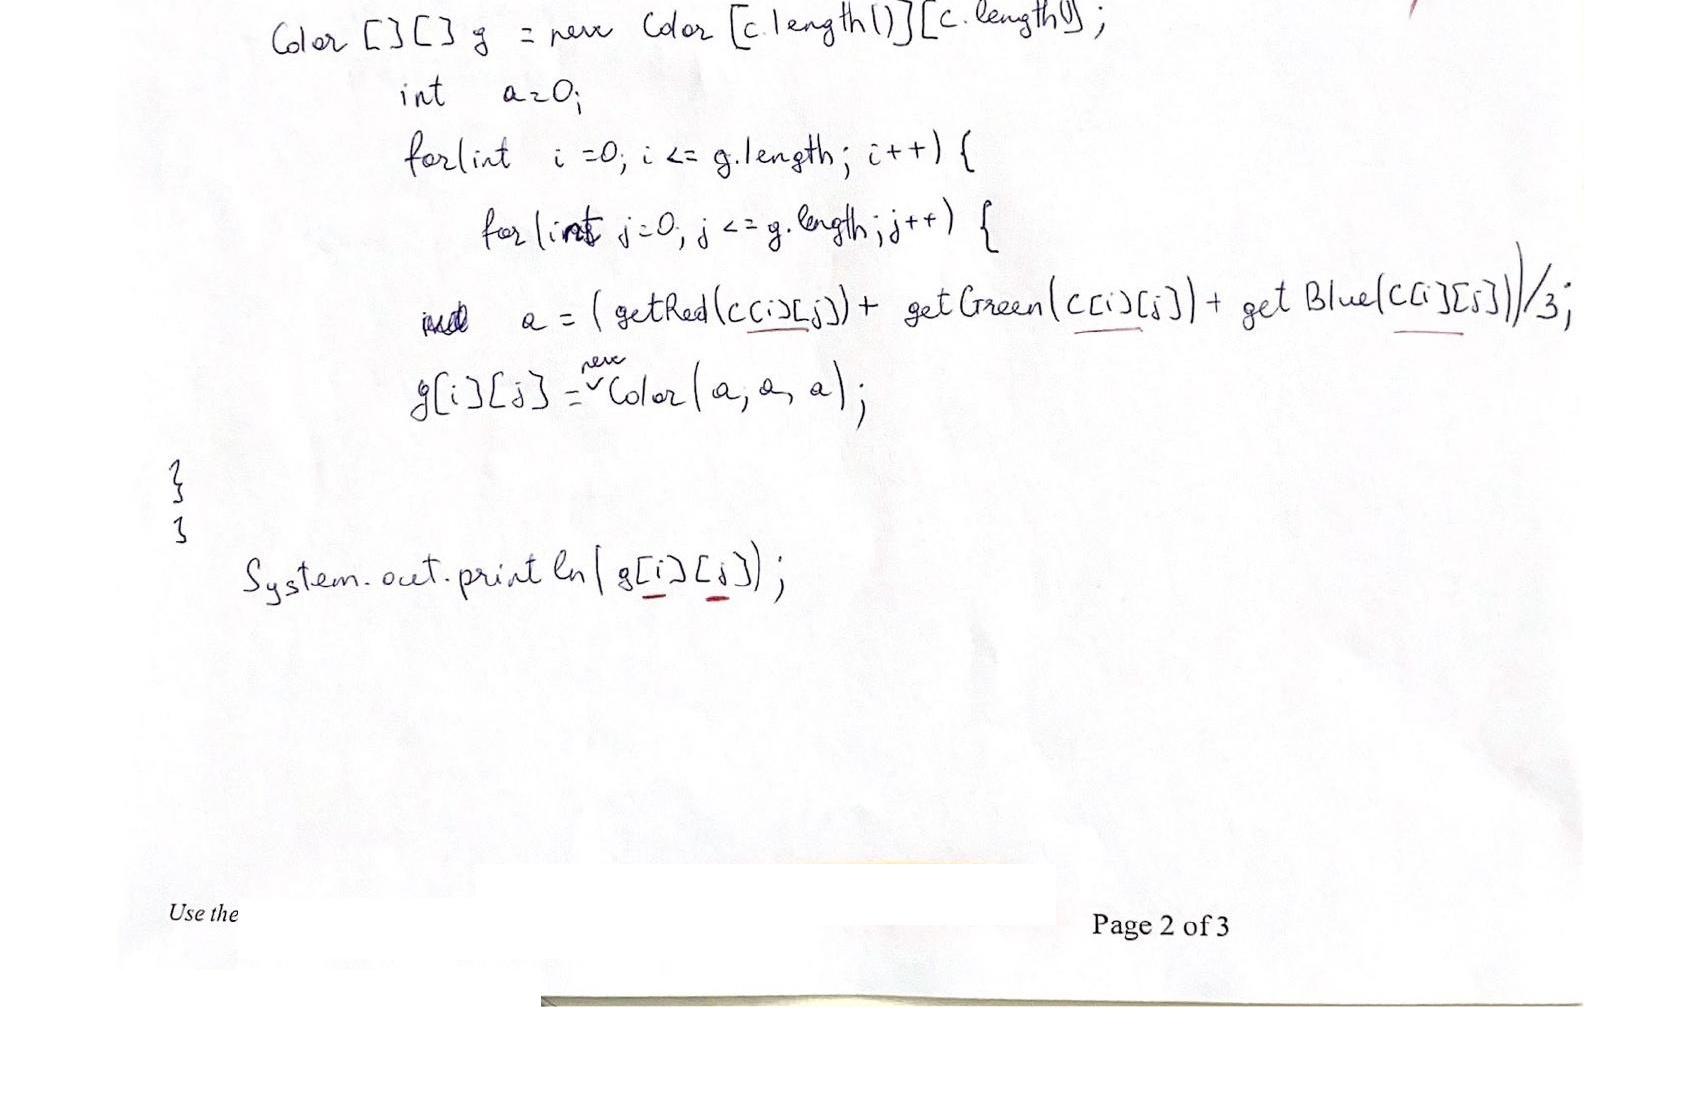 Color [][] g = new Color [c.length()][c.length()];
int a=0;
for(int i=0; i <= g.length; i++) {
for(int j=0; j <= g.length; j++) {
a = (getRed(c[i][j])+ getGreen(c[i][j])+ getBlue(c[i][j]))/3;
new
g[i][j] = Color(a, a, a);
}
}
System.out.println(g[i][j]);
Use the
Page 2 of 3